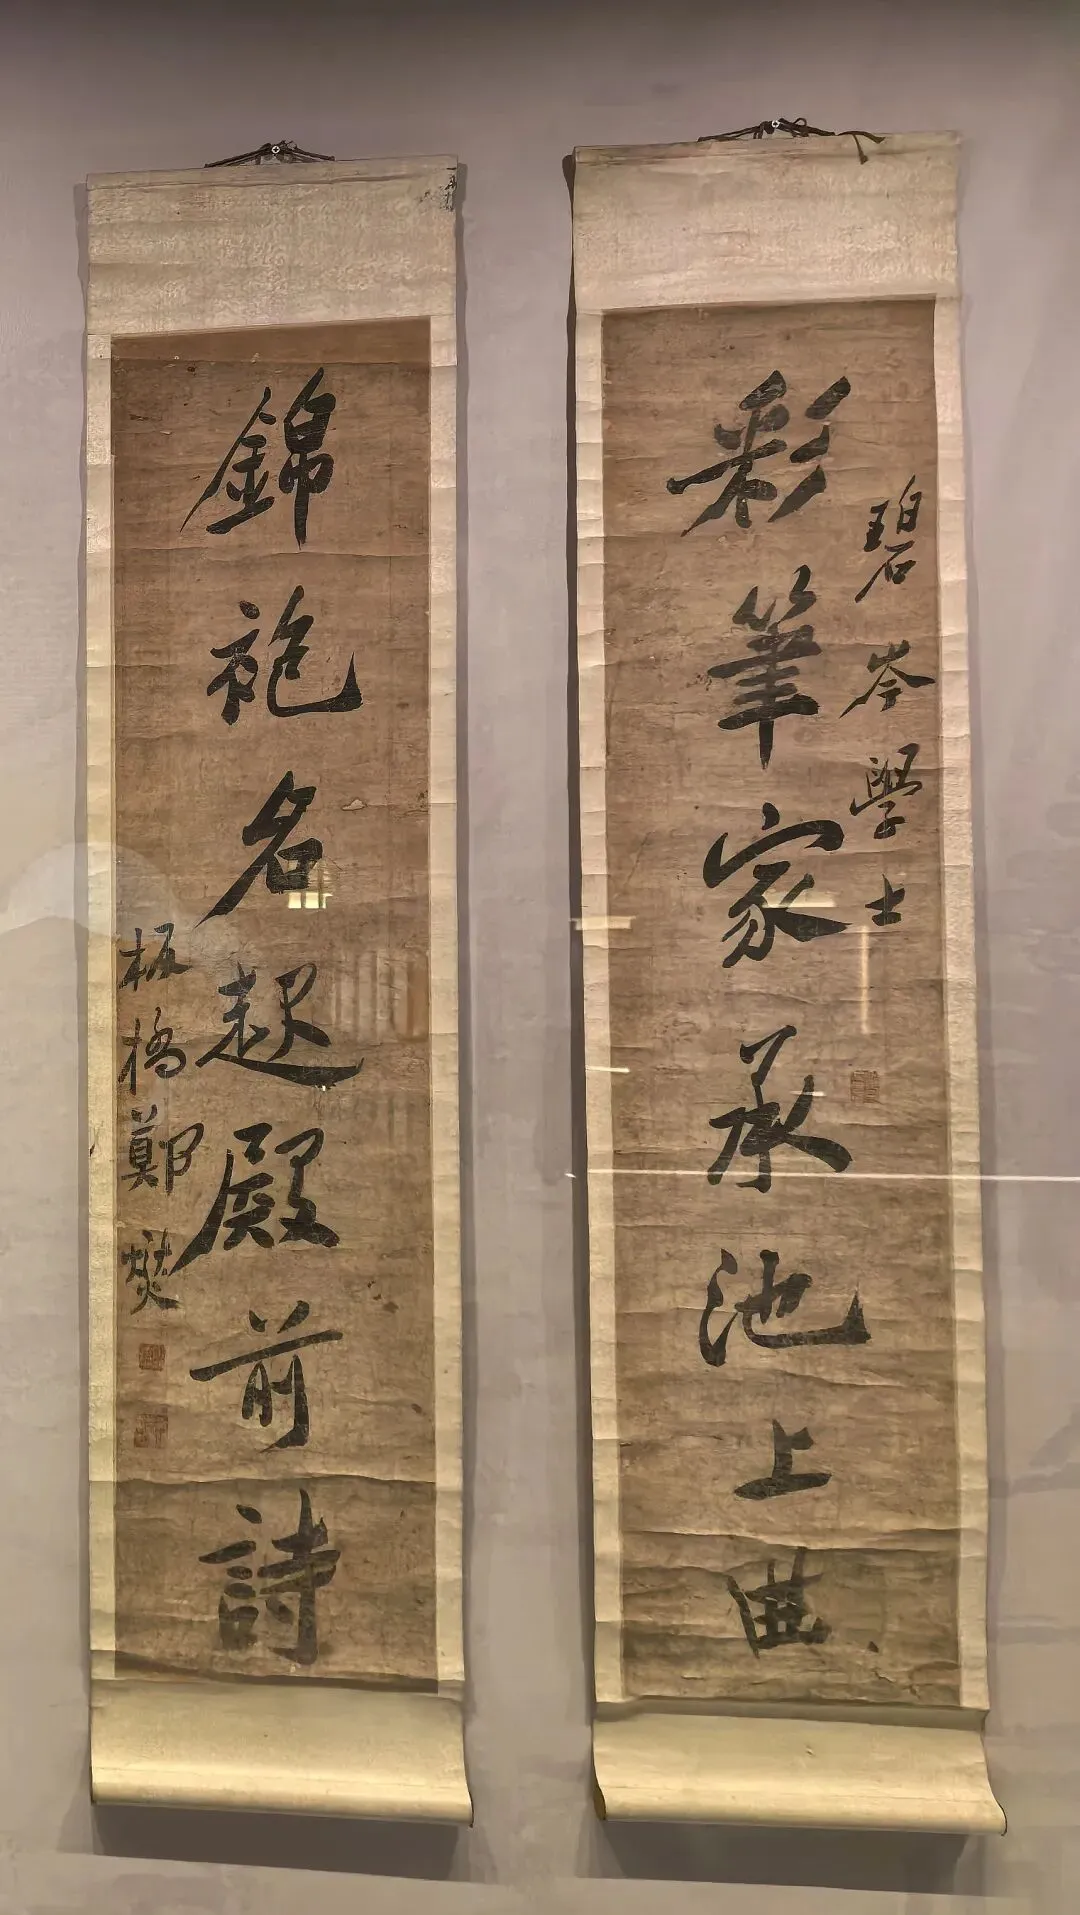 碧岑學士
彩筆家承池上曲
錦袍名起殿前詩
板橋鄭燮